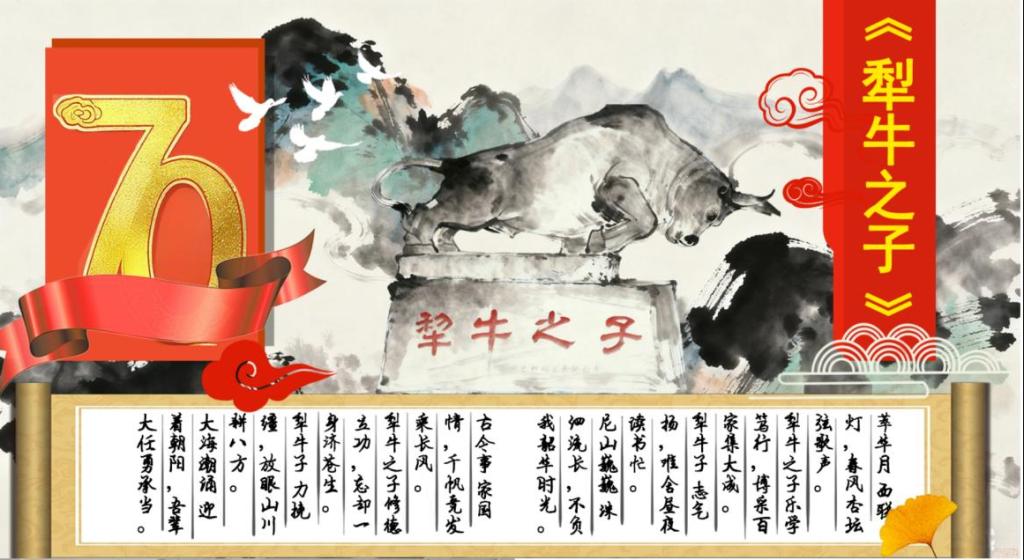 70
《犁牛之子》
犁牛之子
月 西联
灯,春风杏坛
弦歌声。
犁牛之子乐学
笃行,博采百
家集大成。
犁牛子 志气
扬,惟舍昼夜
读书忙。
尼山巍巍 珠
泗浣长,不负
我韶华时光。
古今事 家国
情,千帆竞发
乘长风。
犁牛之子修德
立功,忘却一
身济苍生。
犁牛子 力挽
疆,放眼山川
耕八方。
大海潮涌 迎
着朝阳,吾辈
大任勇承当。